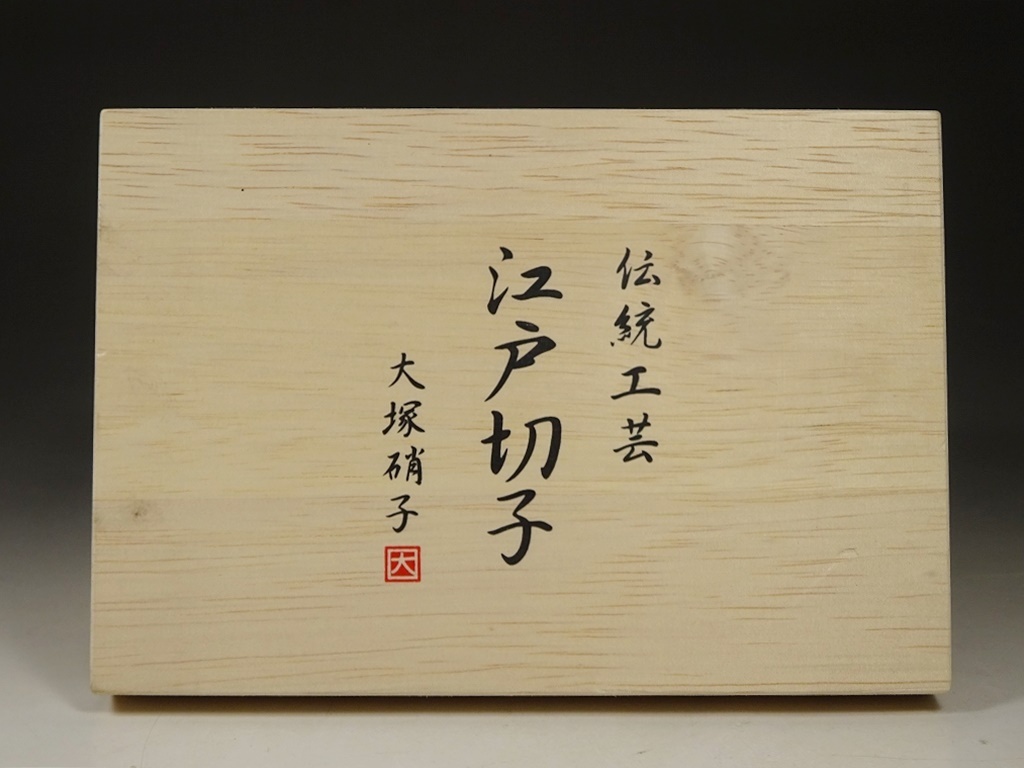 伝統工芸
江戸切子
大塚硝子
大